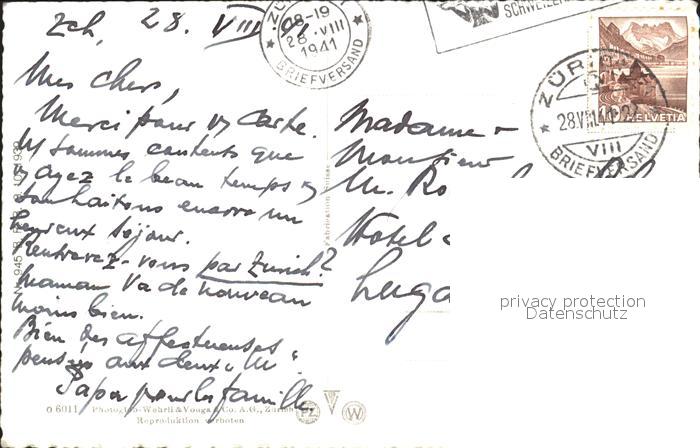 Zch, 28. VIII 41
Mes chers,
Merci pour vs carte.
Ns sommes contents que
vs ayez le beau temps vs
souhaitons encore un
heureux séjour.
Rentrerez-vous par Zurich?
Maman va de nouveau
moins bien.
Bien des affectueuses
pensées aux deux "M".
Papa pour la famille
Madame
Monsieur
M. Ro
Hotel
Luga
ZÜRICH
28.VIII.1941
BRIEFVERSAND
SCHWEIZER
ZÜRICH
28.VIII.41
VIII
BRIEFVERSAND
HELVETIA
Fabrication Suisse
privacy protection
Datenschutz
o 6011 Photoglob-Wehrli & Vouga & Co. A.G., Zürich
Reproduktion verboten
PZ
W